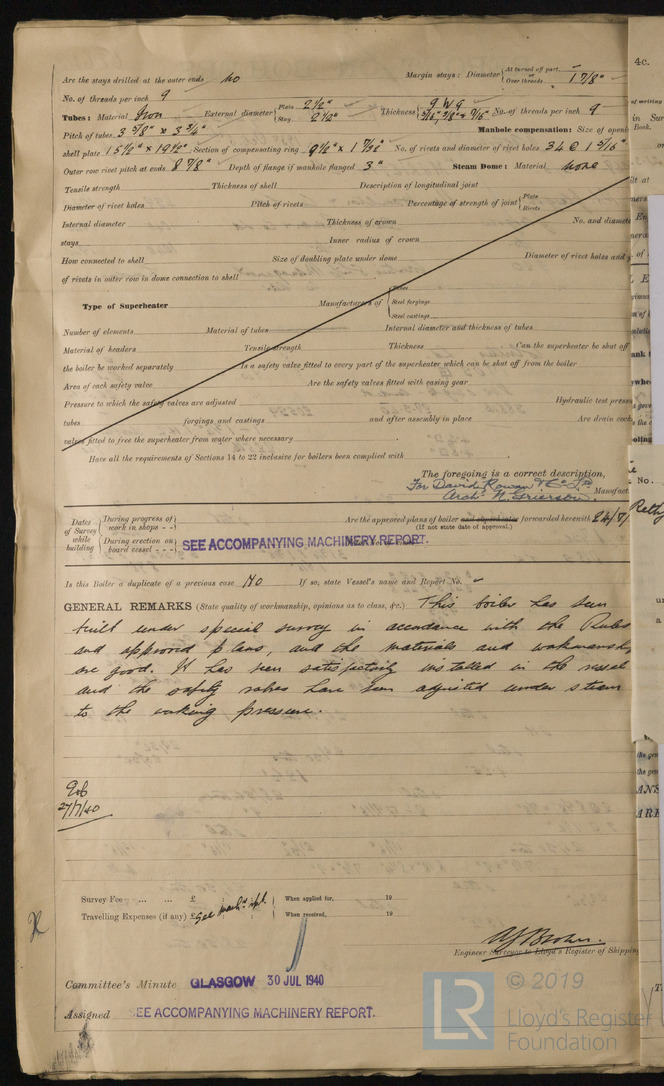 Are the stays drilled at the outer ends No Margin stays: Diameter { At turned off part, – Over threads 1 7/8"
No. of threads per inch 9
Tubes: Material Iron External diameter { Plain 2 1/2" Stay 2 1/2" Thickness { 9 WG 5/16", 3/8" & 7/16" No. of threads per inch 9
Pitch of tubes 3 5/8" x 3 3/4" Manhole compensation: Size of openi
shell plate 15 1/2" x 19 1/2" Section of compensating ring No. of rivets and diameter of rivet holes 34 @ 1 5/16"
Outer row rivet pitch at ends 8 7/8" Depth of flange if manhole flanged 3" Steam Dome: Material None
Tensile strength Thickness of shell Description of longitudinal joint
Diameter of rivet holes Pitch of rivets Percentage of strength of joint { Plate Rivets
Internal diameter Thickness of crown No. and diamete
stays Inner radius of crown
How connected to shell Size of doubling plate under dome Diameter of rivet holes and
of rivets in outer row in dome connection to shell
Type of Superheater Manufacturers of { Tubes Steel forgings Steel castings
Number of elements Material of tubes Internal diameter and thickness of tubes
Material of headers Tensile strength Thickness Can the superheater be shut off
the boiler be worked separately Is a safety valve fitted to every part of the superheater which can be shut off from the boiler
Area of each safety valve Are the safety valves fitted with easing gear
Pressure to which the safety valves are adjusted Hydraulic test press
tubes forgings and castings and after assembly in place Are drain cock
valves fitted to free the superheater from water where necessary
Have all the requirements of Sections 14 to 22 inclusive for boilers been complied with
The foregoing is a correct description,
For David Rowan & Co Ld
Archd. W. Grierson. Manufact
Dates of Survey while building { During progress of work in shops - - During erection on board vessel - - - Are the approved plans of boiler and superheater forwarded herewith 24/7/
(If not state date of approval.)
SEE ACCOMPANYING MACHINERY REPORT.
Is this Boiler a duplicate of a previous case No If so, state Vessel's name and Report No. –
GENERAL REMARKS (State quality of workmanship, opinions as to class, &c.) This boiler has been
built under special survey in accordance with the Rules
and approved plans, and the materials and workmansh
are good. It has been satisfactorily installed in the vessel
and the safety valves have been adjusted under steam
to the working pressure.
27/7/40
Survey Fee ... ... £ When applied for, 19
Travelling Expenses (if any) £ See Mach. rpt. When received, 19
Engineer Surveyor to Lloyd's Register of Shipping
Committee's Minute GLASGOW 30 JUL 1940
Assigned SEE ACCOMPANYING MACHINERY REPORT.
4c.
LR © 2019
Lloyd's Register
Foundation